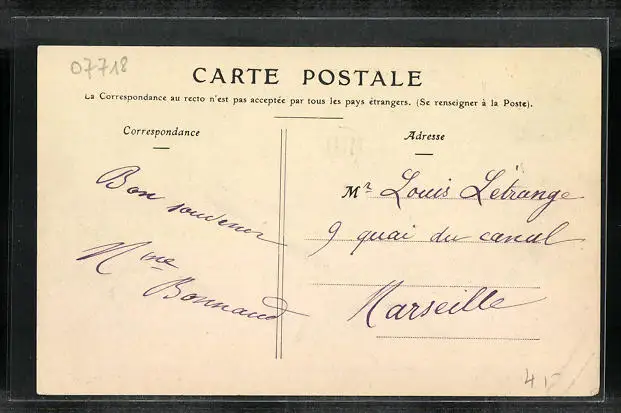 07718
CARTE POSTALE
La Correspondance au recto n'est pas acceptée par tous les pays étrangers. (Se renseigner à la Poste).
Correspondance
Bon souvenir
Mme
Bonnaud
Adresse
Mr Louis Létrange
9 quai du canal
Marseille
4,-